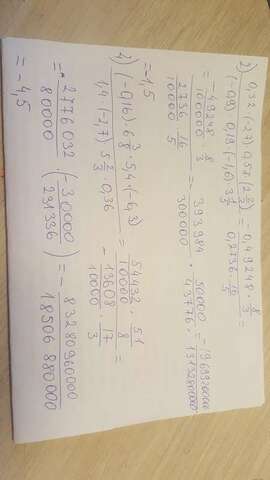 2) 0,32 · (-27) · 0,57 · (2 2/3) / (-0,9) · 0,19 · (-1,6) · 3 1/5 = -0,49248 · 8/3 / 0,2736 · 16/5 =
= -49248/100000 · 8/3 / 2736/10000 · 16/5 = 393984/300000 · 50000/43776 =
= -1,5
4) (-0,16) · 6 3/8 · 5,4 · (-6,3) / 1,4 · (-2,7) · 5 2/3 · 0,36 = 54432/10000 · 51/8 / - 13608/10000 · 17/3 =
= 2776032/80000 · (-30000/231336) = - 83280960000/18506880000
= -4,5